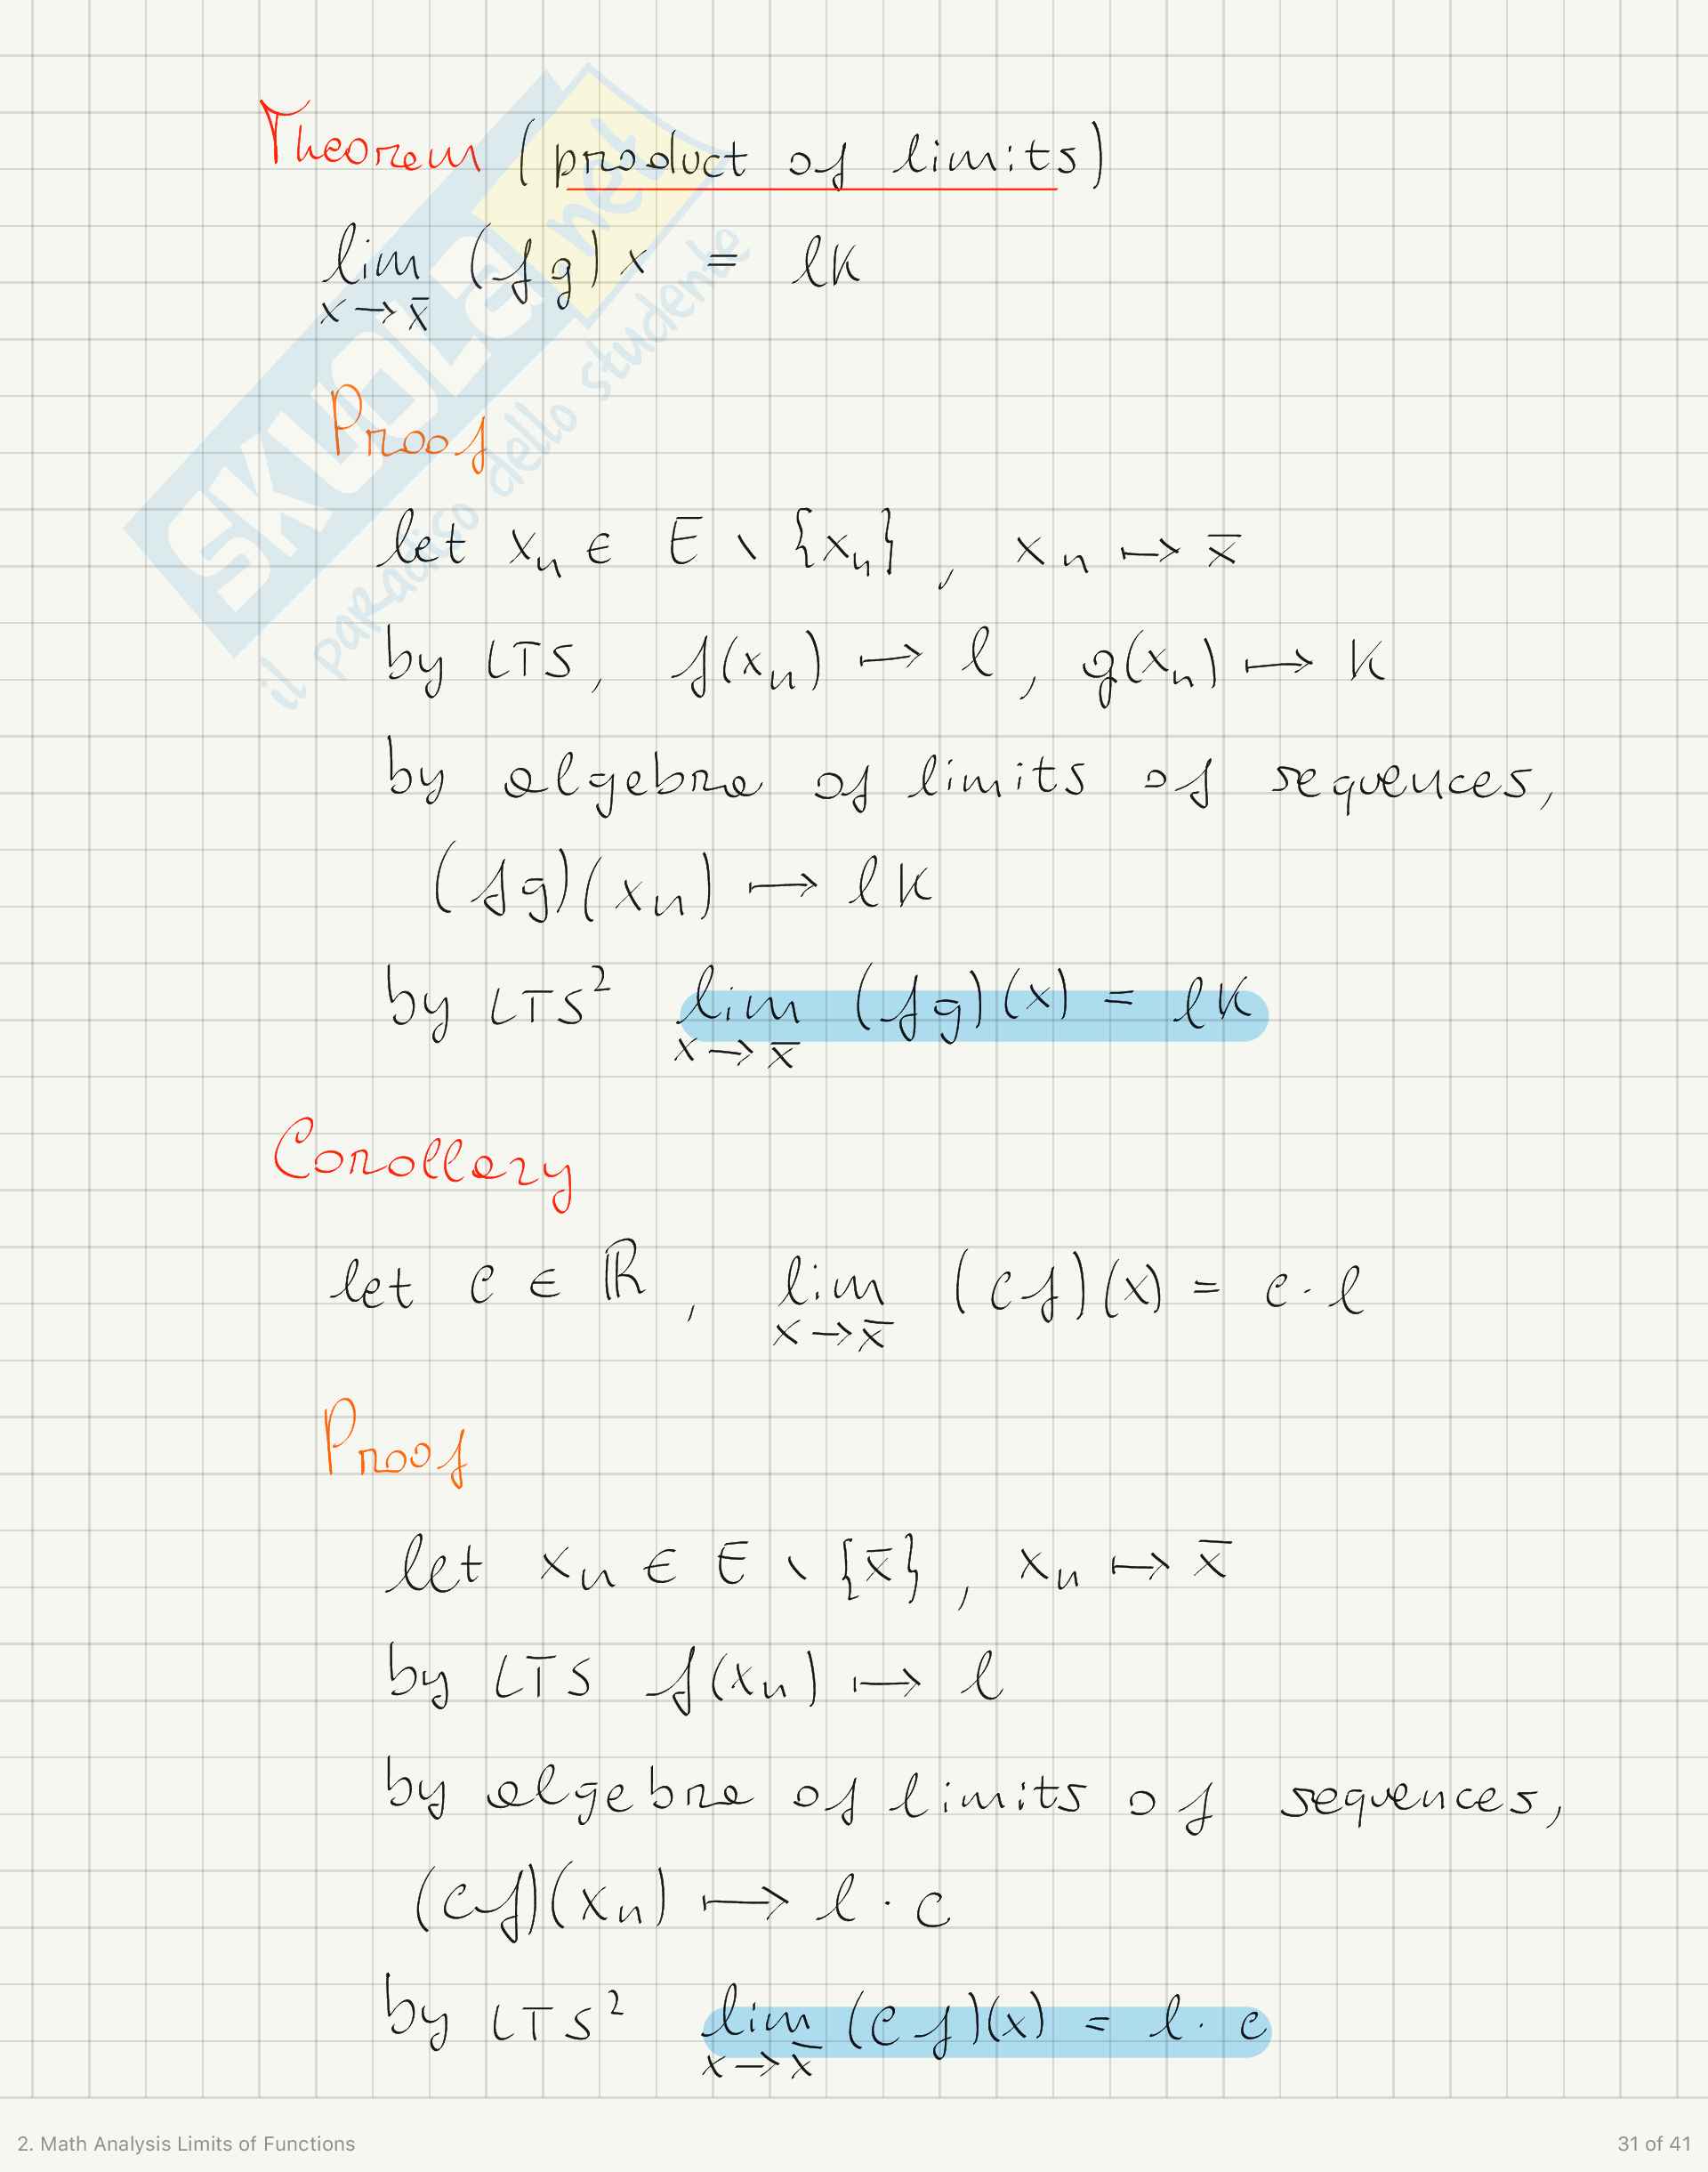 Theorem (product of limits)
lim (fg) x = lk
x → x̄
Proof
let xₙ ∈ E \ {xₙ} , xₙ ↦ x̄
by LTS, f(xₙ) ↦ l , g(xₙ) ↦ k
by algebra of limits of sequences,
(fg)(xₙ) ↦ lk
by LTS² lim (fg)(x) = lk
x → x̄
Corollary
let c ∈ ℝ , lim (cf)(x) = c · l
x → x̄
Proof
let xₙ ∈ E \ {x̄} , xₙ ↦ x̄
by LTS f(xₙ) ↦ l
by algebra of limits of sequences,
(cf)(xₙ) ↦ l · c
by LTS² lim (cf)(x) = l · c
x → x̄
SKUOLA.net
il paradiso dello studente
2. Math Analysis Limits of Functions
31 of 41